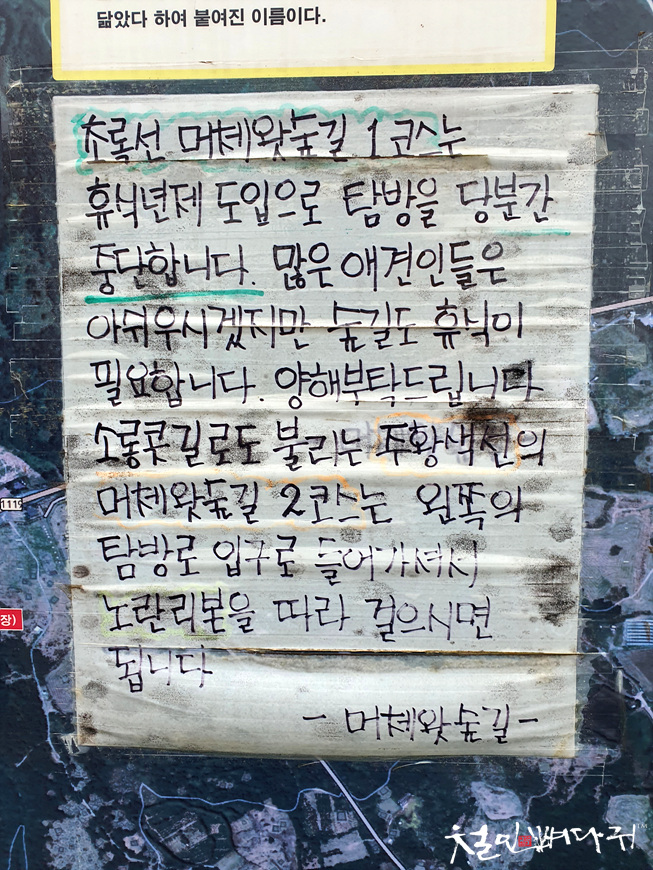 닮았다 하여 붙여진 이름이다.
초록선 머체왓숲길 1코스는
휴식년제 도입으로 탐방을 당분간
중단합니다. 많은 애견인들은
아쉬우시겠지만 숲길도 휴식이
필요합니다. 양해부탁드립니다
소롱콧길로도 불리는 주황색선의
머체왓숲길 2코스는 왼쪽의
탐방로 입구로 들어가셔서
노란리본을 따라 걸으시면
됩니다
- 머체왓숲길 -
1119
장)